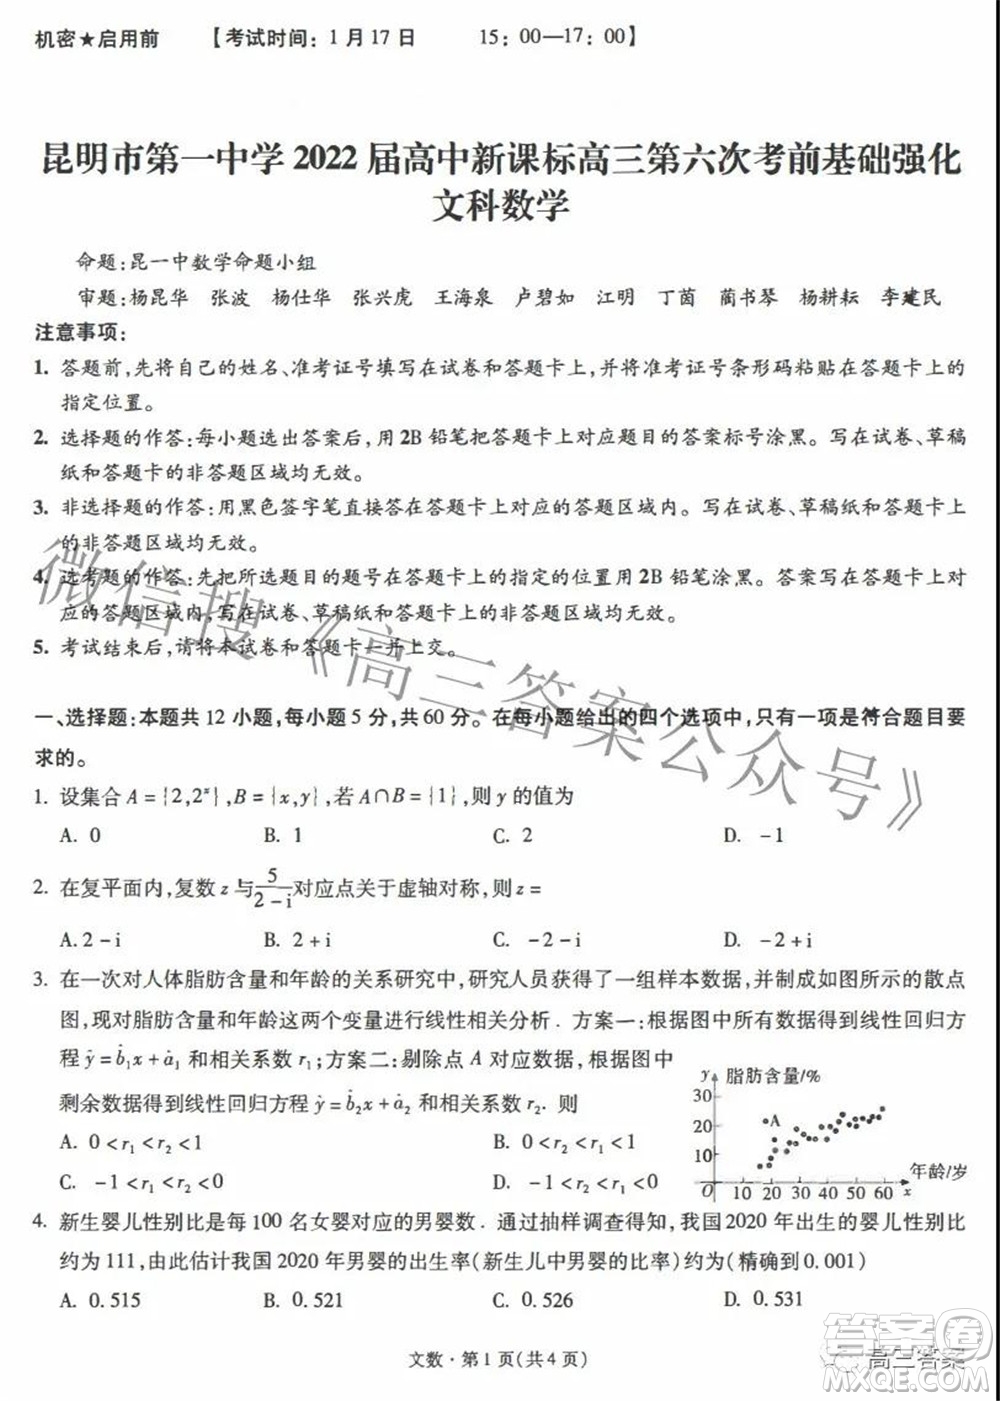 机密★启用前 【考试时间：1月17日 15：00—17：00】
昆明市第一中学2022届高中新课标高三第六次考前基础强化
文科数学
命题:昆一中数学命题小组
审题:杨昆华 张波 杨仕华 张兴虎 王海泉 卢碧如 江明 丁茵 蔺书琴 杨耕耘 李建民
注意事项:
1. 答题前,先将自己的姓名、准考证号填写在试卷和答题卡上,并将准考证号条形码粘贴在答题卡上的
指定位置。
2. 选择题的作答:每小题选出答案后,用2B铅笔把答题卡上对应题目的答案标号涂黑。写在试卷、草稿
纸和答题卡的非答题区域均无效。
3. 非选择题的作答:用黑色签字笔直接答在答题卡上对应的答题区域内。写在试卷、草稿纸和答题卡上
的非答题区域均无效。
4. 选考题的作答:先把所选题目的题号在答题卡上的指定的位置用2B铅笔涂黑。答案写在答题卡上对
应的答题区域内,写在试卷、草稿纸和答题卡上的非答题区域均无效。
5. 考试结束后,请将本试卷和答题卡一并上交。
微信搜《高三答案公众号》
一、选择题:本题共12小题,每小题5分,共60分。在每小题给出的四个选项中,只有一项是符合题目要
求的。
1. 设集合A={2,2ˣ},B={x,y},若A∩B={1},则y的值为
A. 0 B. 1 C. 2 D. -1
2. 在复平面内,复数z与5/(2-i)对应点关于虚轴对称,则z=
A. 2-i B. 2+i C. -2-i D. -2+i
3. 在一次对人体脂肪含量和年龄的关系研究中,研究人员获得了一组样本数据,并制作成如图所示的散点
图,现对脂肪含量和年龄这两个变量进行线性相关分析. 方案一:根据图中所有数据得到线性回归方
程ŷ=b̂₁x+â₁和相关系数r₁;方案二:剔除点A对应数据,根据图中
剩余数据得到线性回归方程ŷ=b̂₂x+â₂和相关系数r₂. 则
A. 0<r₁<r₂<1 B. 0<r₂<r₁<1
C. -1<r₁<r₂<0 D. -1<r₂<r₁<0
y 脂肪含量/%
30
20
10
A
O 10 20 30 40 50 60 x
年龄/岁
4. 新生婴儿性别比是每100名女婴对应的男婴数. 通过抽样调查得知,我国2020年出生的婴儿性别比
约为111,由此估计我国2020年男婴的出生率(新生儿中男婴的比率)约为(精确到0.001)
A. 0.515 B. 0.521 C. 0.526 D. 0.531
文数·第1页(共4页)
高三答案
答案卷
MXQE.COM